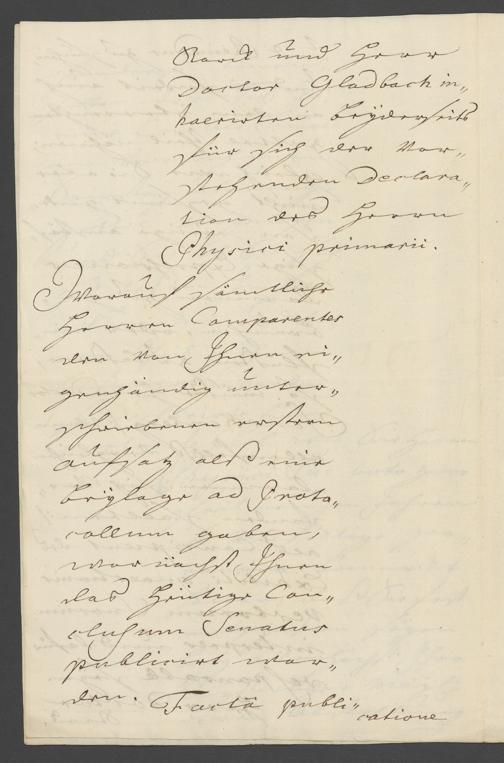 Nord und Herr
Doctor Gladbach in„
haerirten beÿderseits
für sich der Vor„
stehenden Declara„
tion des Herrn
Physici primarii.
Worauf sämtliche
Herren Comparentes
den von Ihnen ei„
genhändig unter„
schriebenen erstern
Aufsatz alß eine
Beÿlage ad Proto„
collum gaben,
wornächst Ihnen
das heütige Con„
clusum Senatus
publicirt wor„
den. Factâ publi„
catione